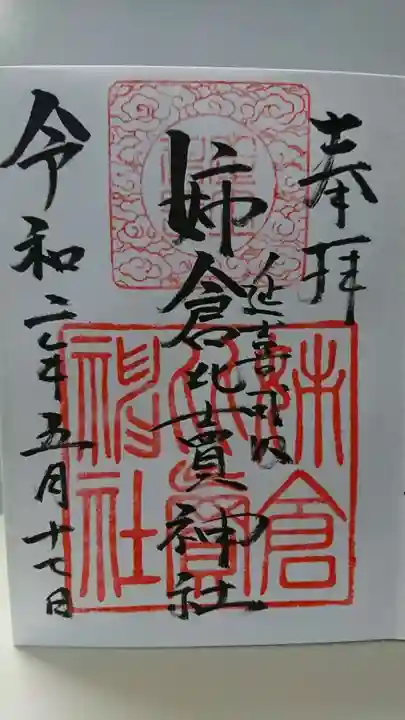 奉拝
延喜式内
姉倉比賣神社
令和二年五月十七日
姉倉
比賣
神社